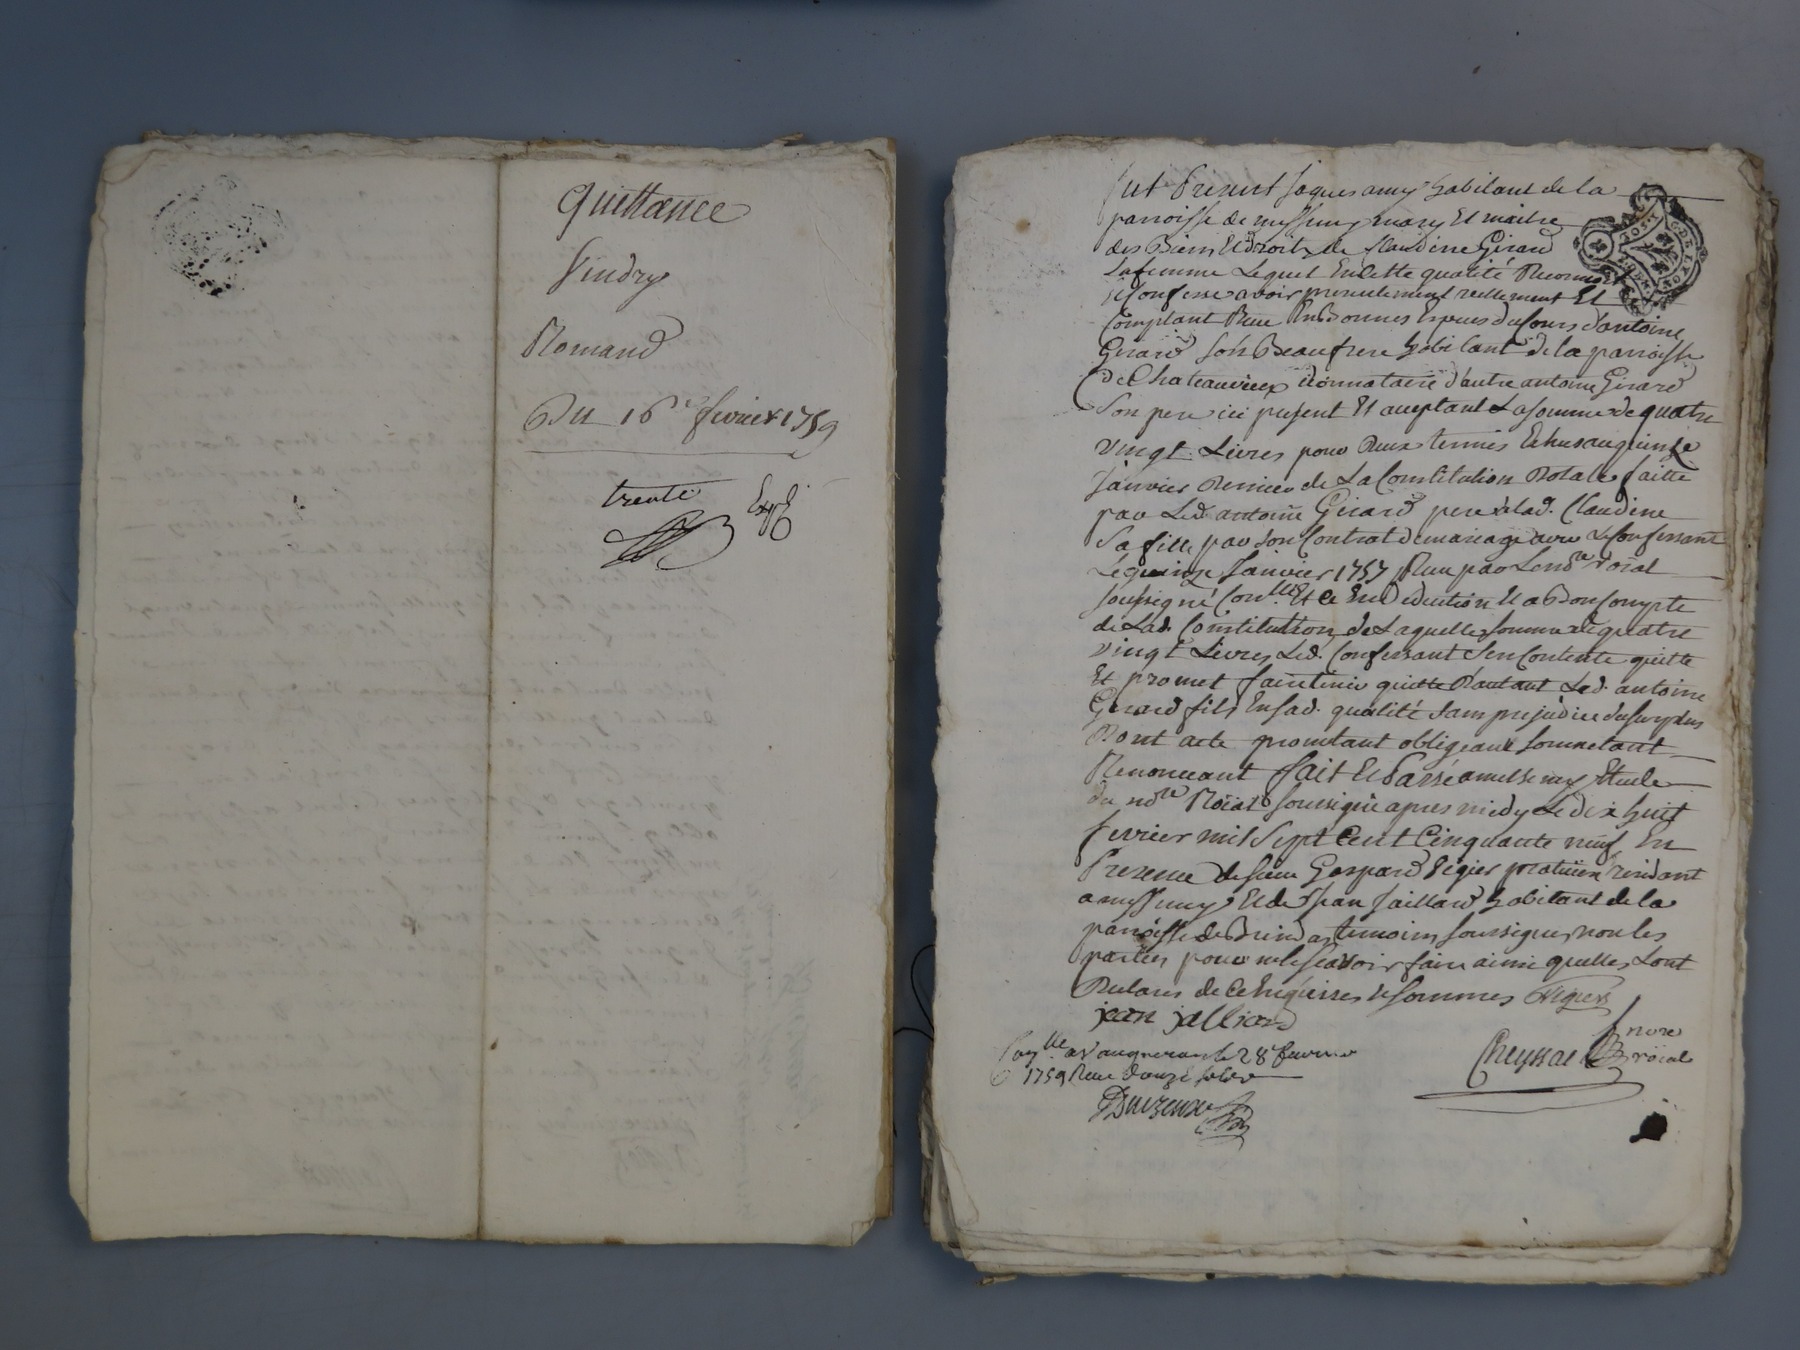 Quittance
Vindry
Romand
Du 16e fevrier 1759
trente
Exp.
fut Present Jaques amy habitant de la
parroisse de messimy mary Et maitre
des Biens Et droits de Claudine Girard
Sa femme Lequel En Cette qualité Reconnoit
et Confesse avoir presentement reellement Et
Comptant Receu En Bonnes Especes du Cours d'antoine
Girard son Beaufrere habitant de la parroisse
de Chateauvieux donnataire d'autre antoine Girard
Son pere ici present Et acceptant La somme de quatre
vingt Livres pour deux termes Echus au quinze
Janvier dernier de La Constitution dotale faitte
par Led. antoine Girard pere a lad. Claudine
Sa fille par son Contrat de mariage avec Le Confessant
Le quinze Janvier 1757 Receu par Le nore roial
soussigné Conllé Et ce En deduction Et a Bon Compte
de Lad. Constitution de Laquelle somme de quatre
vingt Livres Led. Confessant S'en Contente quitte
Et promet faire tenir quitte d'autant Led. antoine
Girard fils En sad. qualité sans prejudice du surplus
Dont acte promettant obligeant soumettant
Renonceant fait Et Passé a messimy Etude
du nore Roial soussigné apres midy Le dix huit
fevrier mil Sept Cent Cinquante neuf En
Presence de sieur Gaspard Vigier praticien residant
a messimy Et de Jean Jaillard habitant de la
parroisse de Brindas temoins soussignes non les
parties pour ne le scavoir faire ainsi quelles sont
Declaré de Ce Enquises et sommes Vigier
jean jalliard
Cheyssac nore
roial
Conllé a Vaugneray le 28e fevrier
1759 Receu douze sols